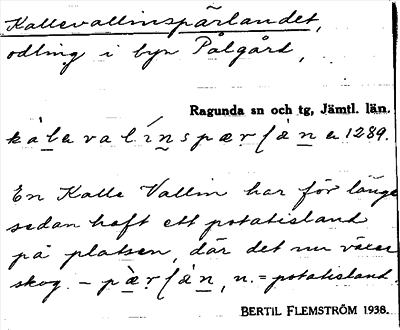 Kallevallinspärlandet,
odling i byn Pålgård,
Ragunda sn och tg, Jämtl. län.
kàlavalínspærʃàna 1289.
En Kalle Vallin har för länge
sedan haft ett potatisland
på platsen, där det nu växer
skog. – pæ̀rʃàn, n. = potatisland.
BERTIL FLEMSTRÖM 1938.